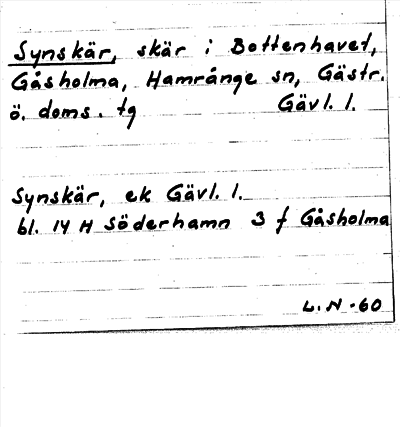 Synskär, skär i Bottenhavet,
Gåsholma, Hamrånge sn, Gästr.
ö. doms. tg Gävl. l.
Synskär, ek Gävl. l.
bl. 14 H Söderhamn 3 f Gåsholma
L. N - 60